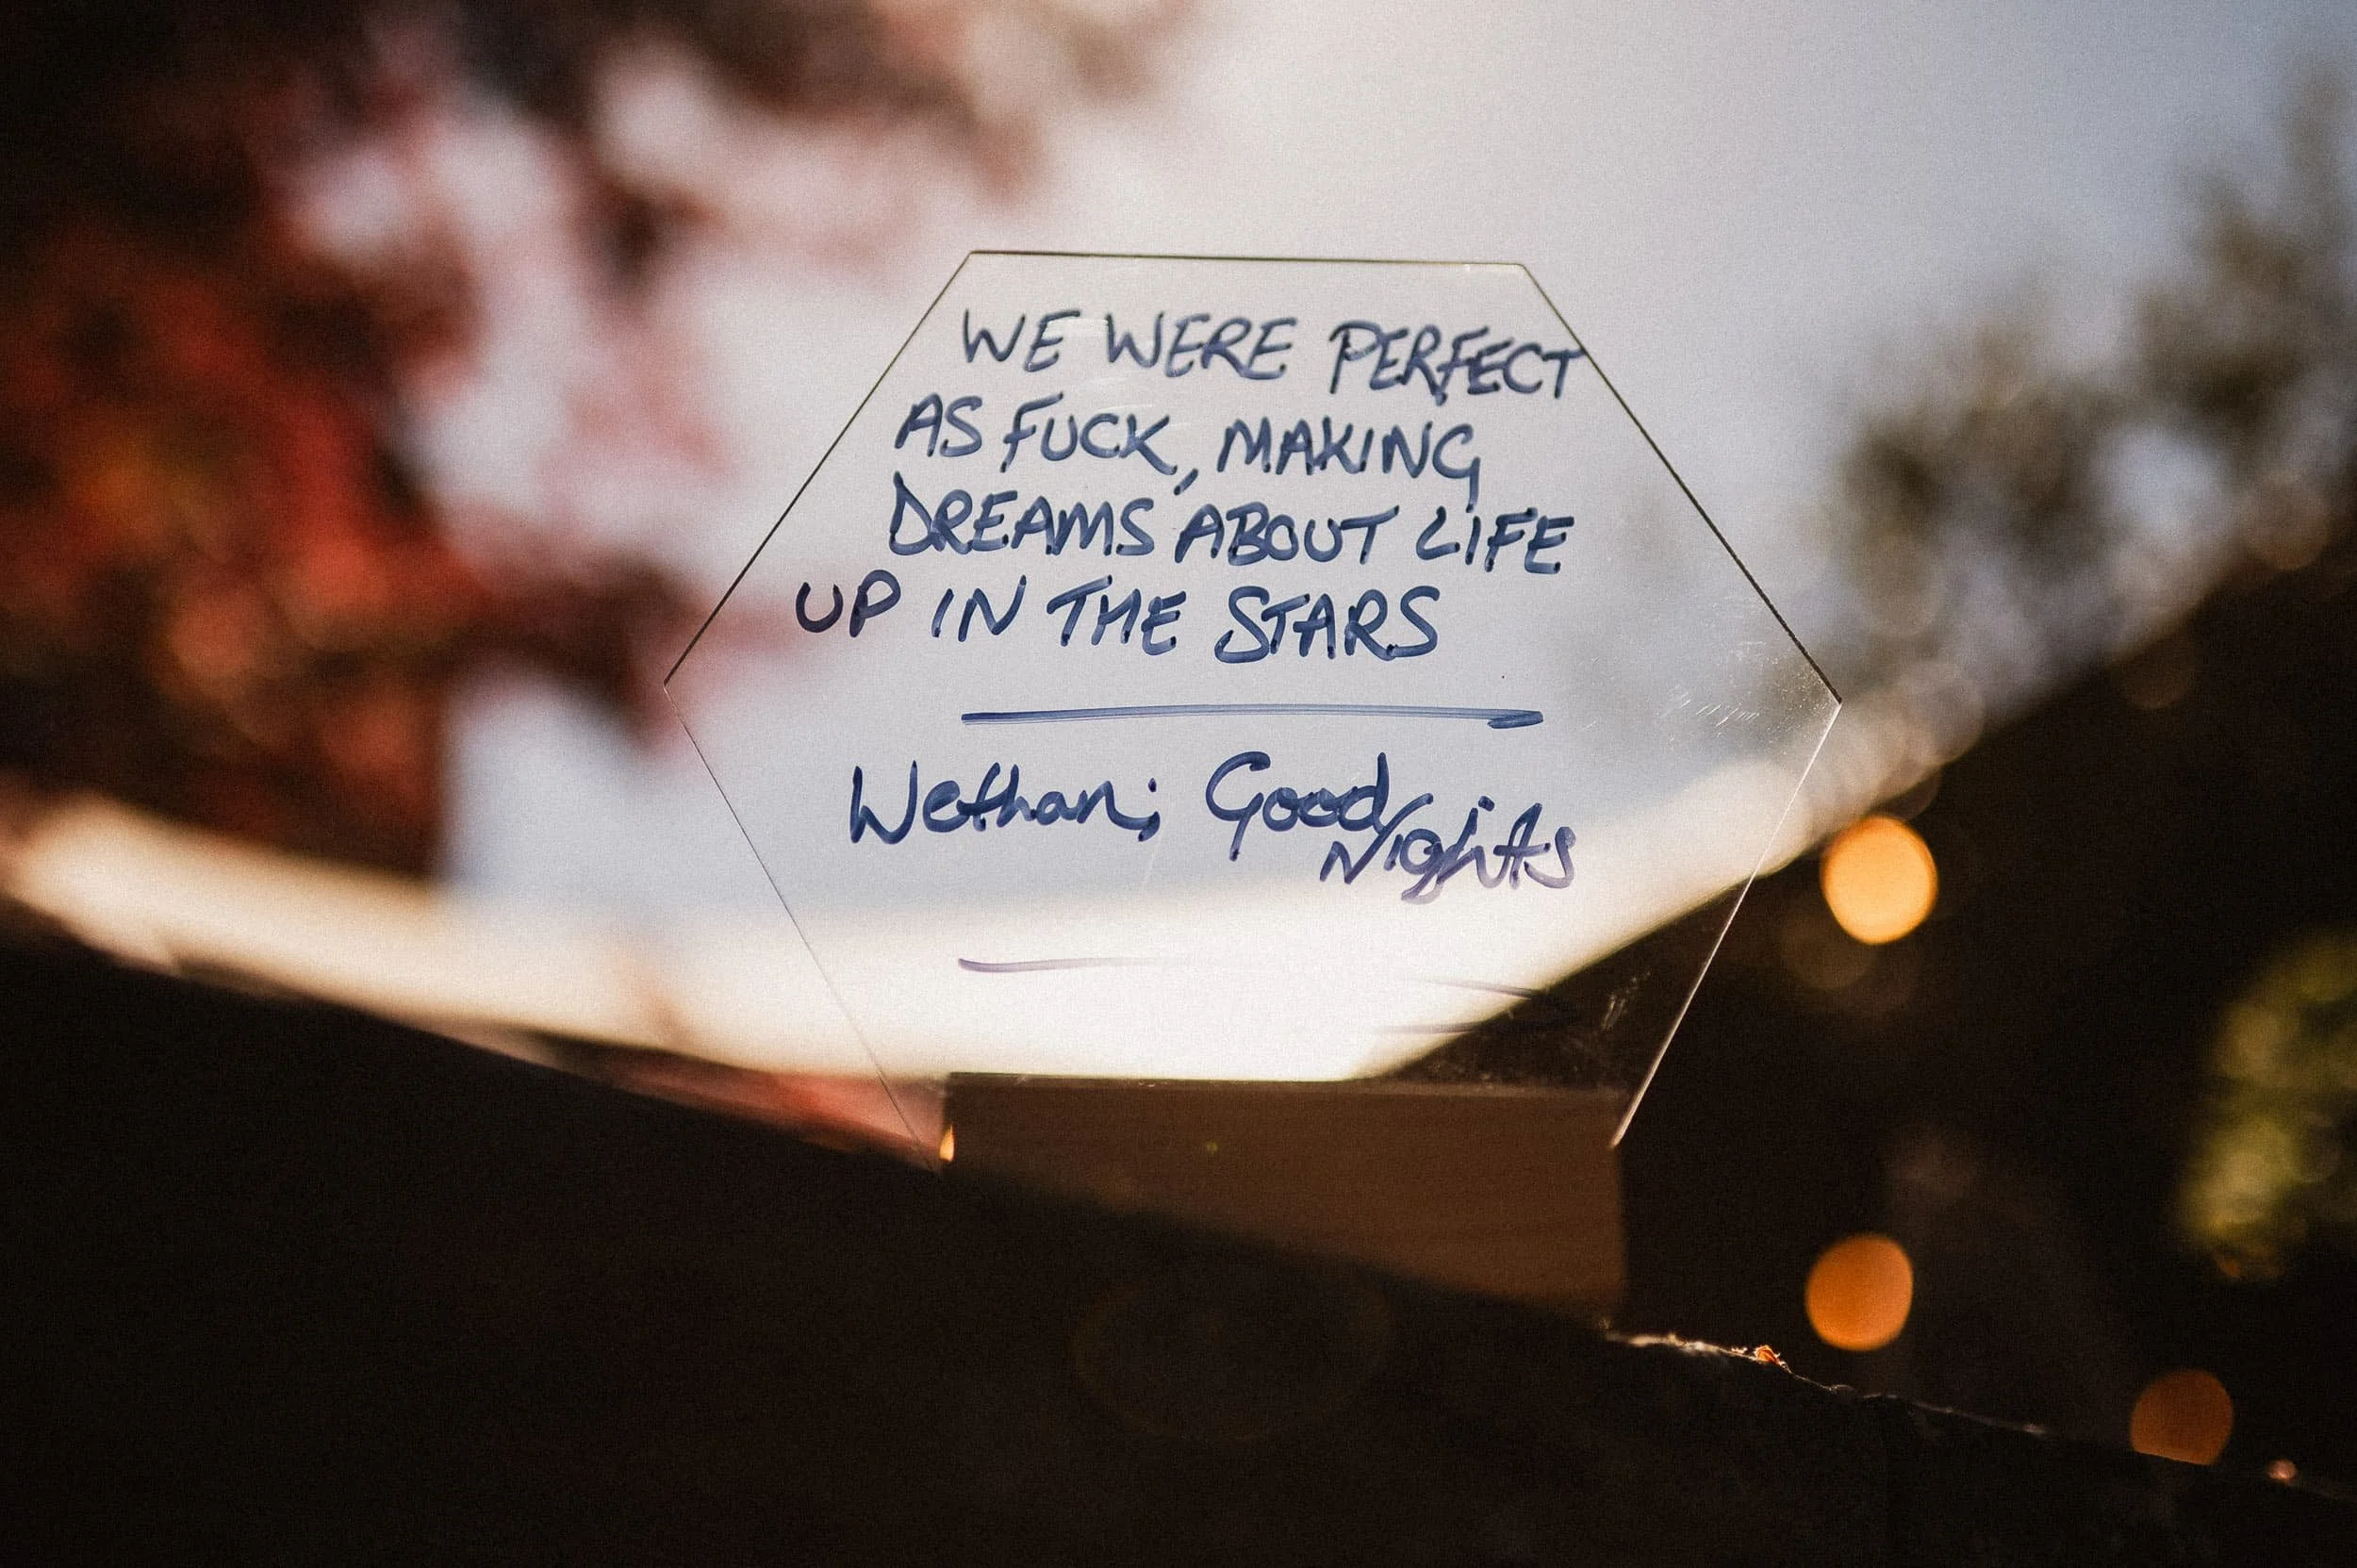 WE WERE PERFECT
AS FUCK, MAKING
DREAMS ABOUT LIFE
UP IN THE STARS
Wethan; Good
Nights